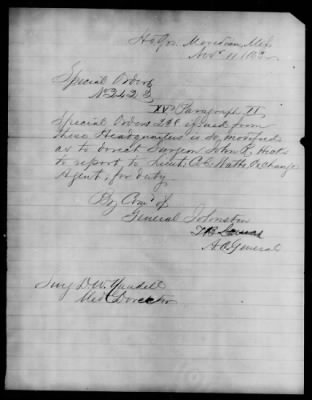 Hd Qrs. Meridian, Miss
Novr 11 1863
Special Orders
No 242
XV Paragraph II
Special Orders issued from
these Headquarters is so modified
as to direct Surgeon John R. Hicks
to report to Lieut. C. C. Watts, Exchange
Agent, for duty
By Comd of
General Johnston
A. A. General
Surg D. W. Yandell
Med Director